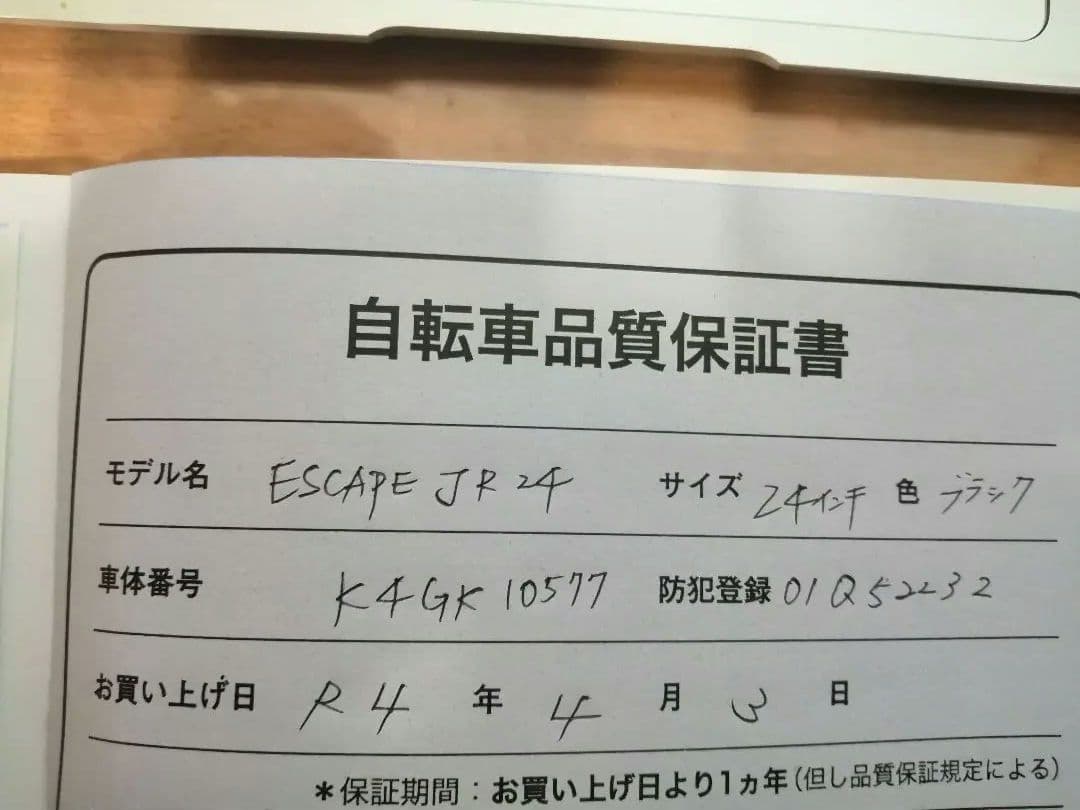 自転車品質保証書
モデル名 ESCAPE JR 24 サイズ 24インチ 色 ブラック
車体番号 K4GK10577 防犯登録 01Q52232
お買い上げ日 R4 年 4 月 3 日
*保証期間：お買い上げ日より1ヵ年（但し品質保証規定による）